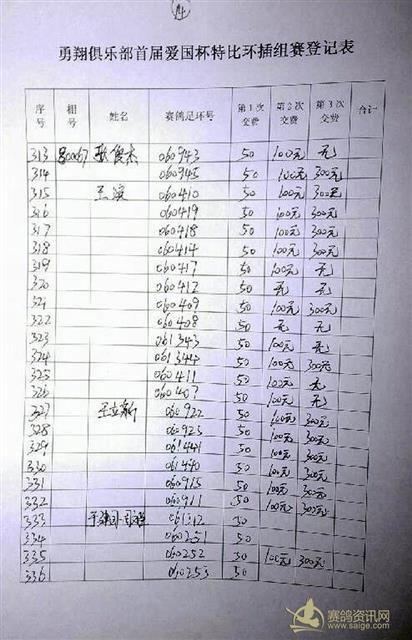 勇翔俱乐部首届爱国杯特比环插组赛登记表
序号 棚号 姓名 赛鸽足环号 第1次交费 第2次交费 第3次交费 合计
313 060943 50 100元 无
314 060945 50 100元 300元
315 060410 50 100元 300元
316 060419 50 100元 300元
317 060418 50 100元 300元
318 060414 50 100元 300元
319 060417 50 100元 无
320 060412 50 无 无
321 060409 50 100元 300元
322 060408 50 无 无
323 061343 50 100元 无
324 061344 50 100元 300元
325 060411 50 100元 无
326 060407 50 100元 无
327 060922 50 100元 300元
328 060923 50 100元 300元
329 061441 50 100元 300元
330 061440 50 100元 300元
331 060915 50 100元 300元
332 060911 50 100元 300元
333 50
334 060251 50
335 060252 50 100元 300元
336 060253 50
赛鸽资讯网
www.saige.com